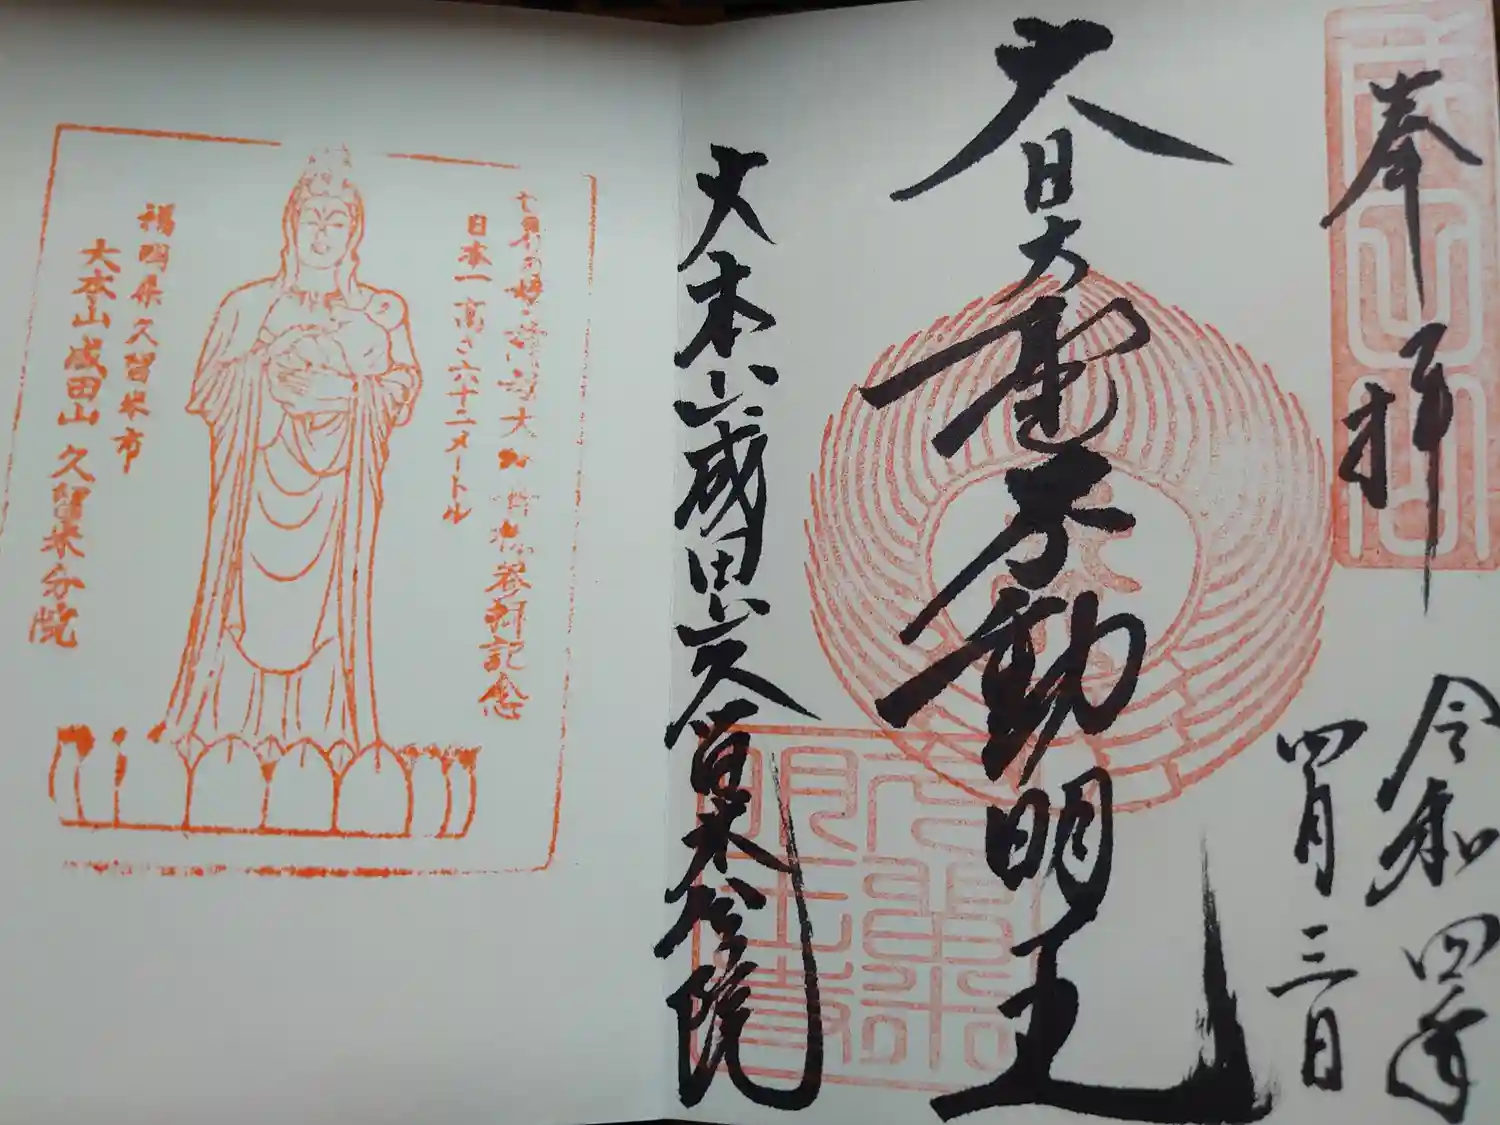 奉拝
令和四年
四月三日
大日大聖不動明王
大本山成田山久留米分院
日本一 高さ六十二メートル
福岡県久留米市
大本山成田山 久留米分院